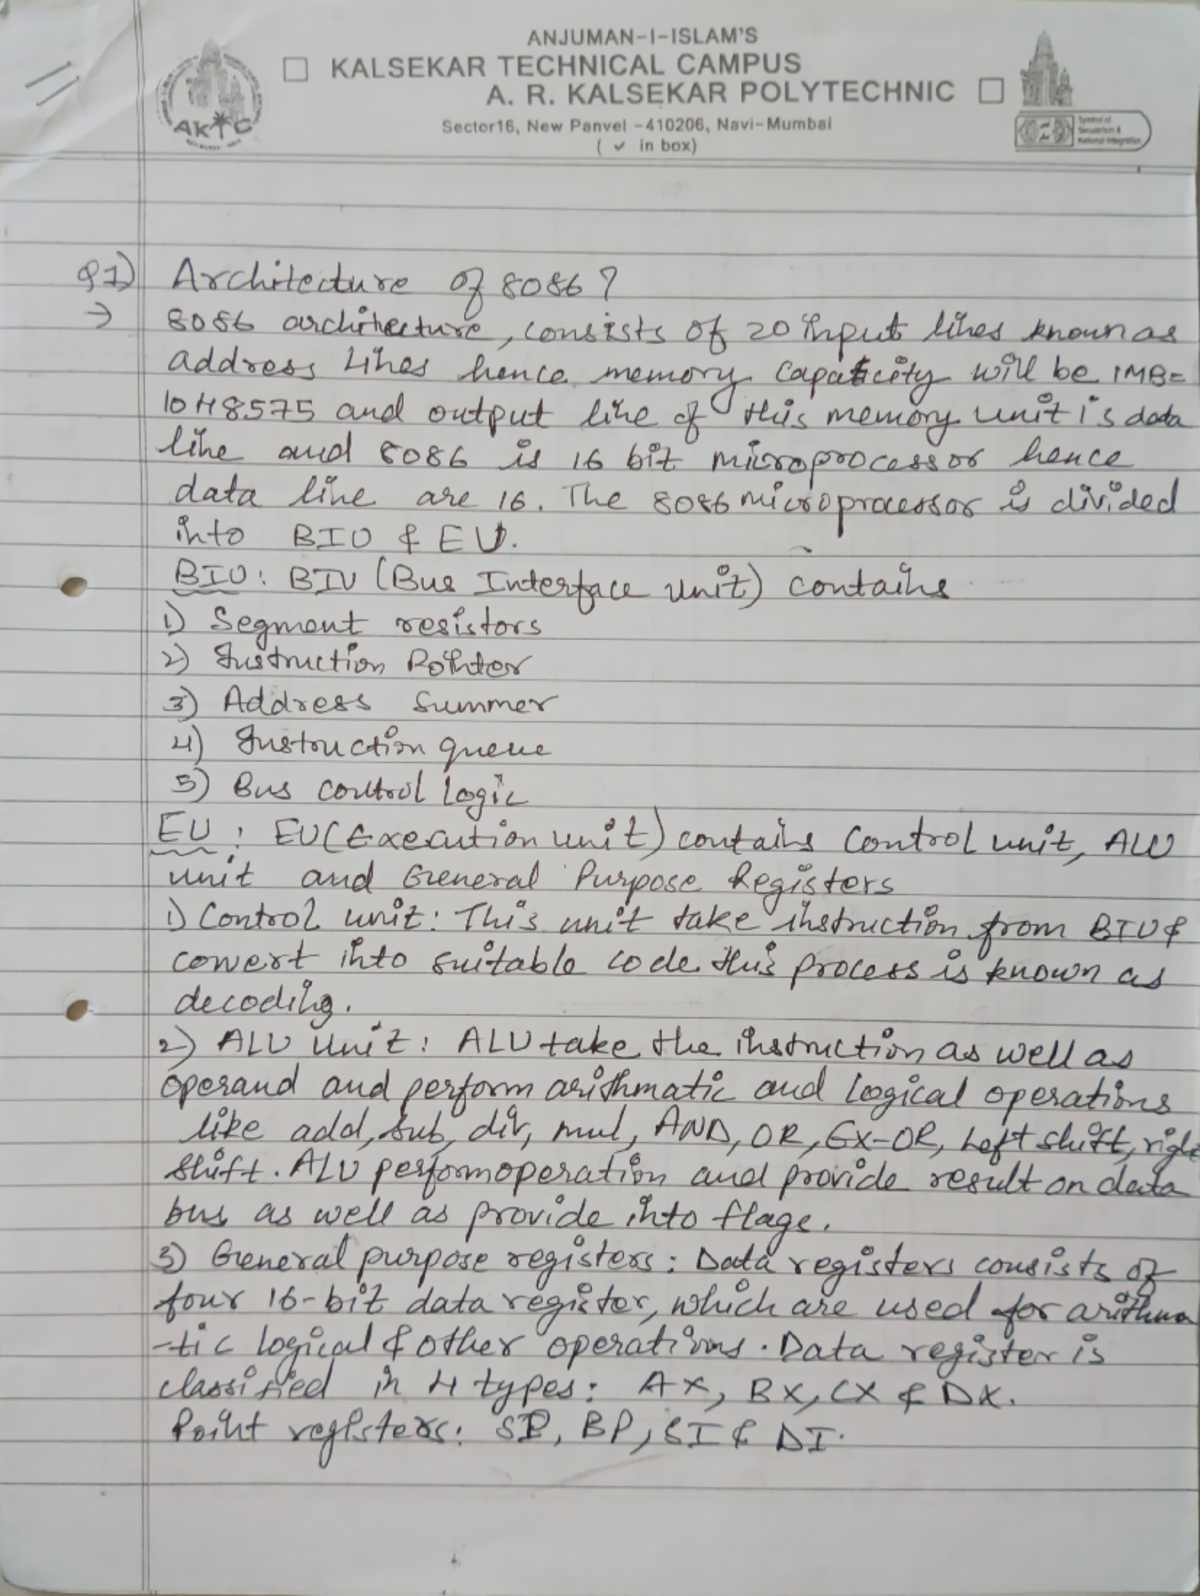 ANJUMAN-I-ISLAM'S
☐ KALSEKAR TECHNICAL CAMPUS
A. R. KALSEKAR POLYTECHNIC ☐
Sector16, New Panvel -410206, Navi-Mumbai
( ✓ in box)
AKTC
Symbol of
Secularism &
National Integration
Q1) Architecture of 8086?
→ 8086 architecture, consists of 20 input lines known as
address lines hence memory capaticity will be 1MB=
1048575 and output line of this memory unit is data
line and 8086 is 16 bit microprocessor hence
data line are 16. The 8086 microprocessor is divided
into BIU & EU.
BIU: BIU (Bus Interface Unit) contains
1) Segment resistors
2) Instruction Pointer
3) Address Summer
4) Instruction queue
5) Bus control Logic
EU: EU(Execution unit) contains Control unit, ALU
unit and General Purpose Registers
1) Control unit: This unit take instruction from BIU &
convert into suitable code this process is known as
decoding.
2) ALU Unit: ALU take the instruction as well as
operand and perform arithmatic and Logical operations
like add, sub, div, mul, AND, OR, EX-OR, Left shift, right
shift. ALU perform operation and provide result on data
bus as well as provide into flage.
3) General purpose registers: Data registers consists of
four 16-bit data register, which are used for arithma
-tic logical & other operations. Data register is
classified in 4 types: AX, BX, CX & DX.
Point registers: SP, BP, SI & DI.